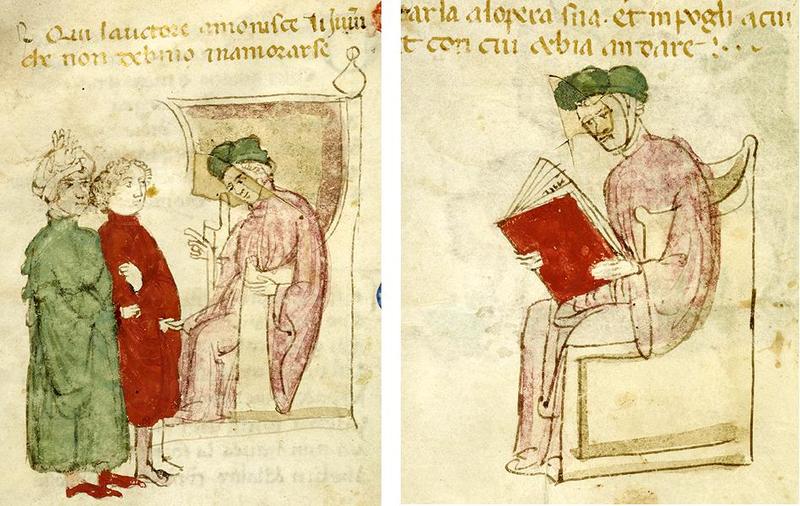 Qui lauctore amonisce li
che non debino inamorarse
alopera sua. et in pogli
con cui debia andare